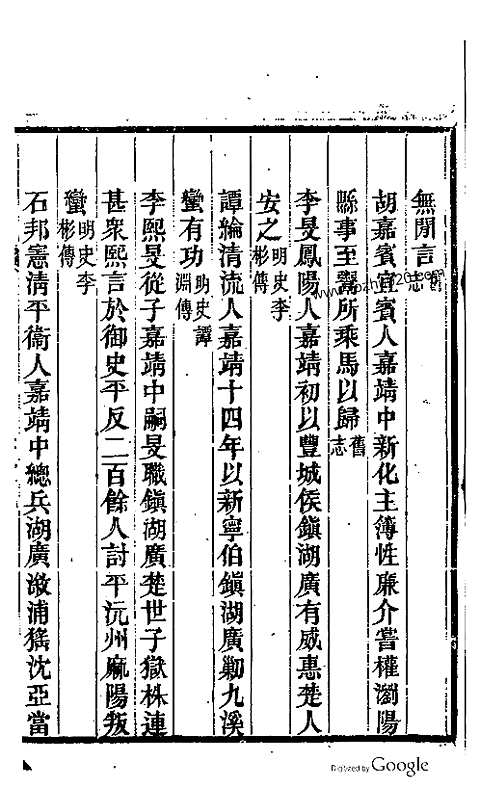 無閒言舊志
胡嘉賓宜賓人嘉靖中新化主簿性廉介嘗權瀏陽
縣事至鬻所乘馬以歸舊志
李旻鳳陽人嘉靖初以豐城侯鎮湖廣有威惠楚人
安之明史李彬傳
譚綸清流人嘉靖十四年以新寧伯鎮湖廣勦九溪
蠻有功明史譚淵傳
李熙旻從子嘉靖中嗣旻職鎮湖廣楚世子獄株連
甚衆熙言於御史平反二百餘人討平沅州麻陽叛
蠻明史李彬傳
石邦憲淸平衞人嘉靖中總兵湖廣漵浦猺沈亞當
Digitized by Google